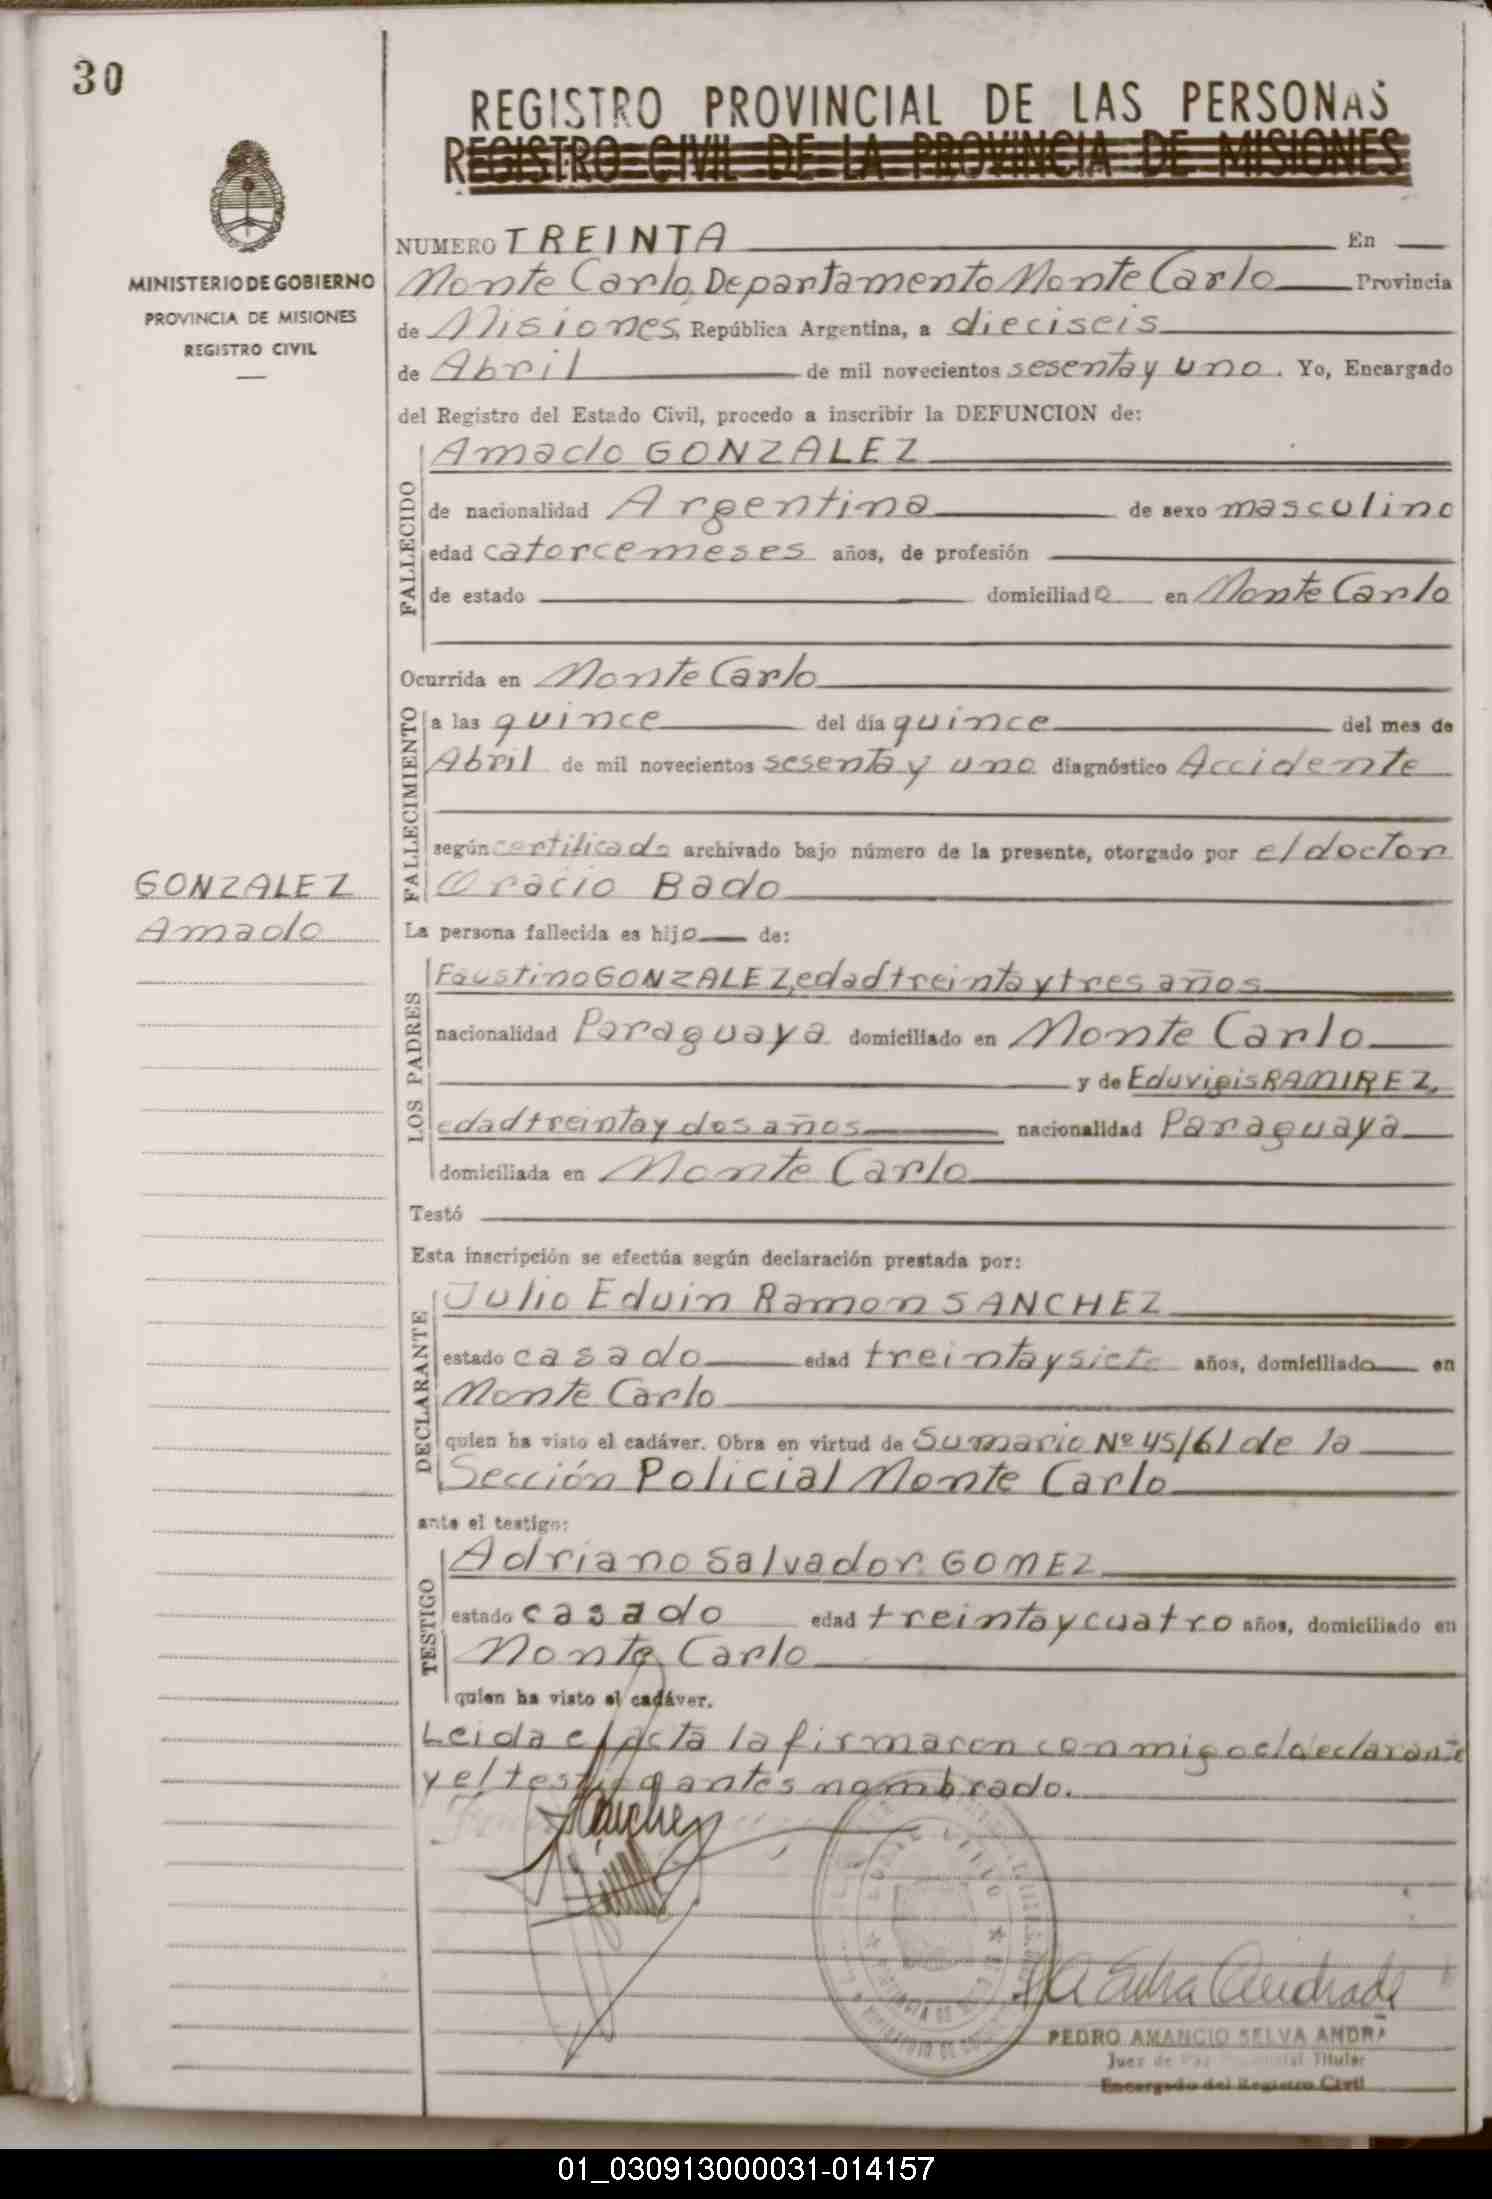 30
REGISTRO PROVINCIAL DE LAS PERSONAS
REGISTRO CIVIL DE LA PROVINCIA DE MISIONES
MINISTERIO DE GOBIERNO
PROVINCIA DE MISIONES
REGISTRO CIVIL
NUMERO TREINTA En
Monte Carlo, Departamento Monte Carlo Provincia
de Misiones, República Argentina, a dieciseis
de Abril de mil novecientos sesenta y uno. Yo, Encargado
del Registro del Estado Civil, procedo a inscribir la DEFUNCION de:
FALLECIDO
Amado GONZALEZ
de nacionalidad Argentina de sexo masculino
edad catorce meses años, de profesión
de estado domiciliado en Monte Carlo
Ocurrida en Monte Carlo
FALLECIMIENTO
a las quince del día quince del mes de
Abril de mil novecientos sesenta y uno diagnóstico Accidente
según certificado archivado bajo número de la presente, otorgado por el doctor
Oracio Bado
GONZALEZ
Amado
La persona fallecida es hijo de:
LOS PADRES
Faustino GONZALEZ, edad treinta y tres años
nacionalidad Paraguaya domiciliado en Monte Carlo
y de Eduvigis RAMIREZ,
edad treinta y dos años nacionalidad Paraguaya
domiciliada en Monte Carlo
Testó
Esta inscripción se efectúa según declaración prestada por:
DECLARANTE
Julio Eduin Ramon SANCHEZ
estado casado edad treinta y siete años, domiciliado en
Monte Carlo
quien ha visto el cadáver. Obra en virtud de Sumario Nº 45/61 de la
Sección Policial Monte Carlo
ante el testigo:
TESTIGO
Adriano Salvador GOMEZ
estado casado edad treinta y cuatro años, domiciliado en
Monte Carlo
quien ha visto el cadáver.
Leida el acta la firmaron conmigo el declarante
y el testigo antes nombrado.
Sanchez
A Selva Andrade
PEDRO AMANCIO SELVA ANDRA
Juez de Paz Titular
Encargado del Registro Civil
01_030913000031-014157